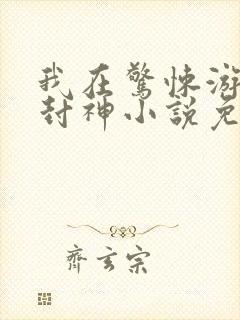 我在驚悚游
封神小說免
齊玄宗